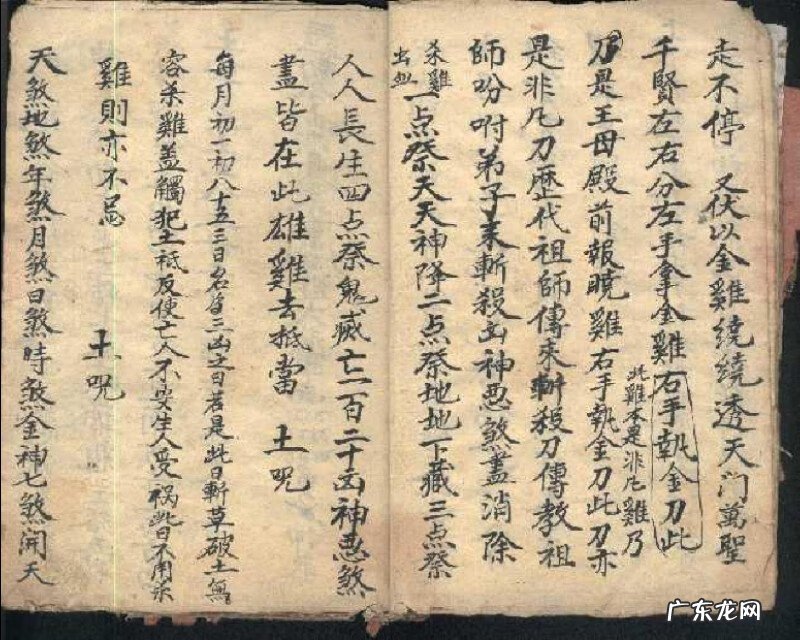 走不停 又伏以金雞繞繞透天门萬聖
千賢左右分左手拿金雞右手執金刀此
此雞本是非凡雞乃
刀是王母殿前報曉雞右手執金刀此刀亦
是非凡刀歷代祖師傳來斬殺刀傳教祖
師吩咐弟子来斬殺凶神惡煞盡消除
杀雞
出血
一点祭天天神降二点祭地地下藏三点祭
人人長生四点祭鬼滅亡一百二十凶神惡煞
盡皆在此雄雞去抵當 土呪
每月初一初八十五三日名為三凶之日若是此日斬草破土無
容杀雞盖觸犯土祗反使亡人不安生人受祸此日不用杀
雞則亦不忌
土呪
天煞地煞年煞月煞日煞時煞金神七煞開天
广东龙网